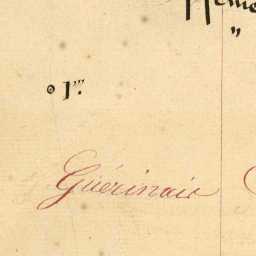 "
o 1'''.
Guérinais